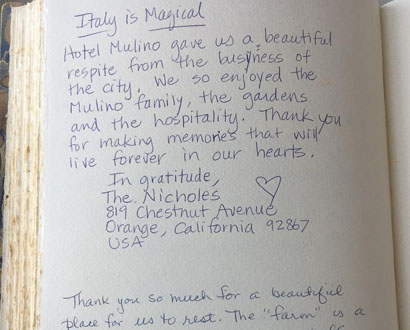 Italy is Magical
Hotel Mulino gave us a beautiful
respite from the busyness of
the city. We so enjoyed the
Mulino family, the gardens
and the hospitality. Thank you
for making memories that will
live forever in our hearts.
In gratitude,
The Nicholes
819 Chestnut Avenue
Orange, California 92867
USA
Thank you so much for a beautiful
place for us to rest. The "farm" is a